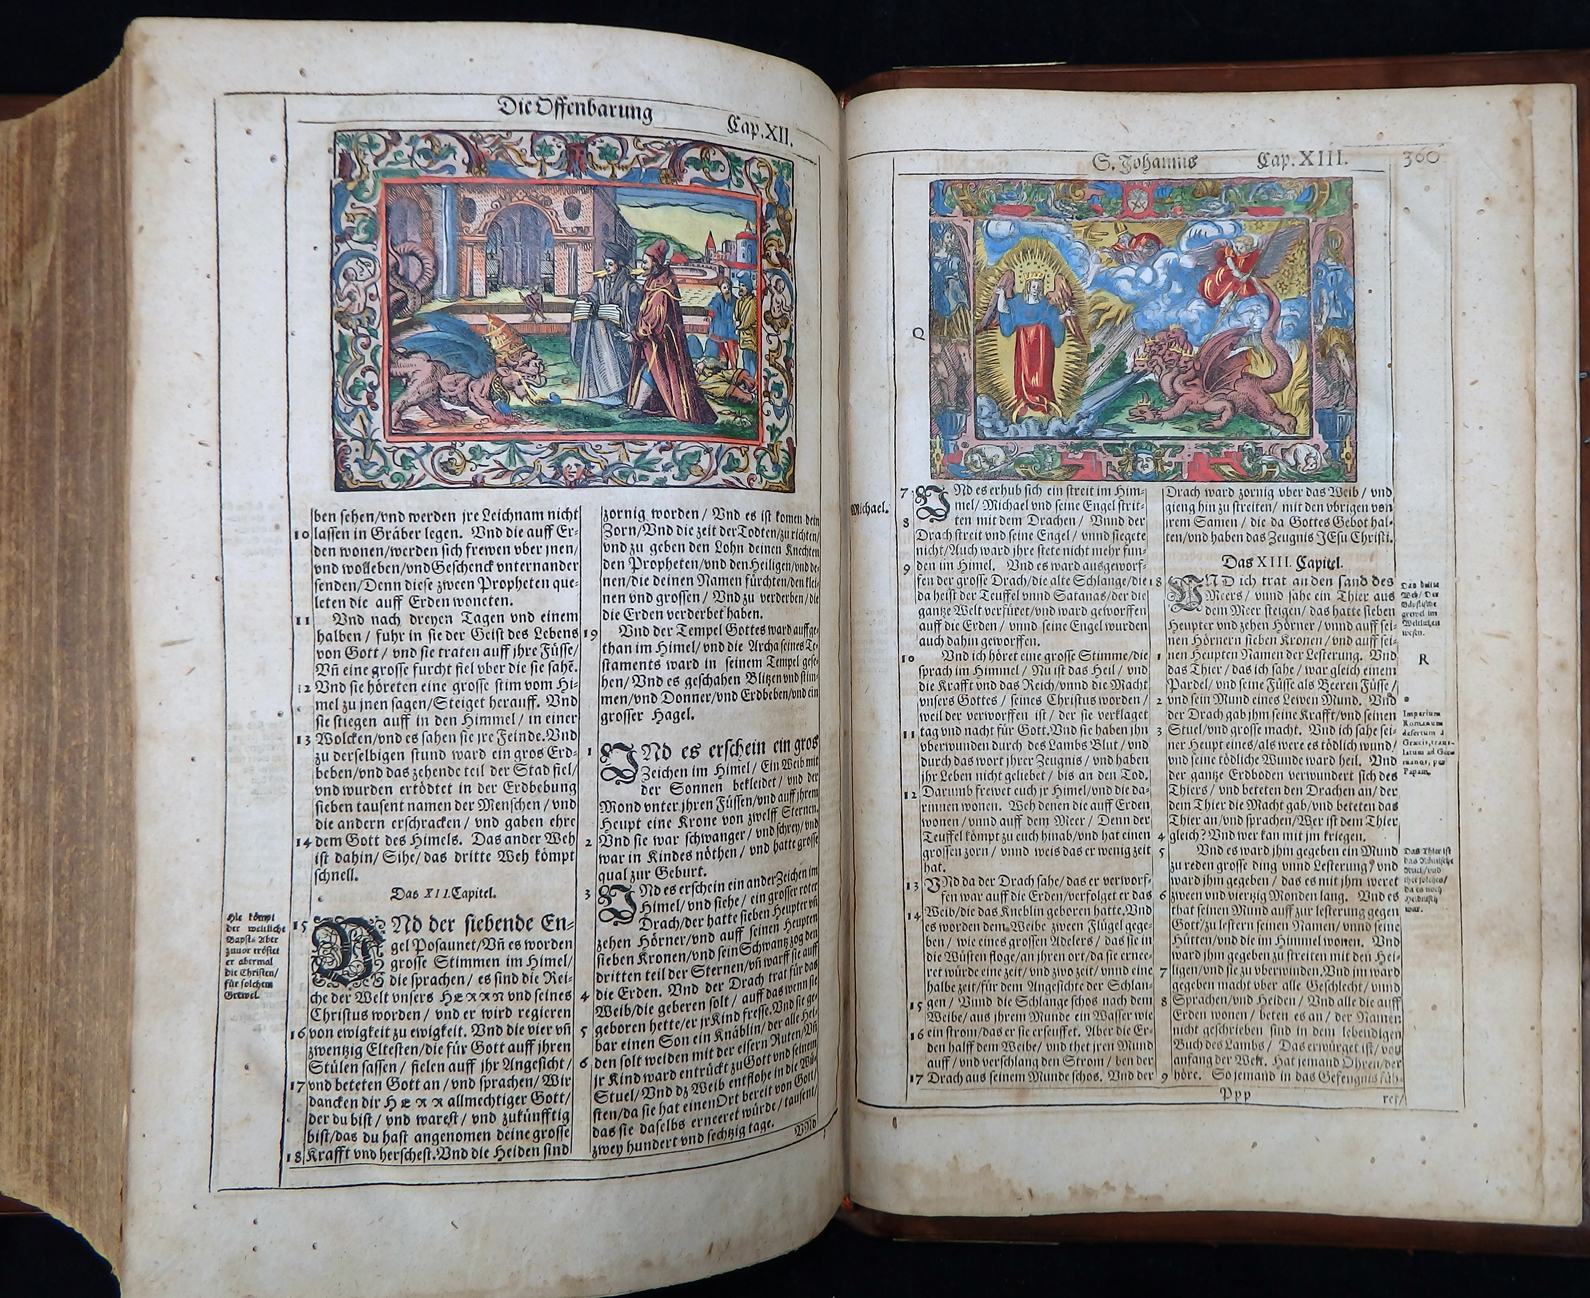 Die Offenbarung
Cap. XII.
ben sehen/vnd werden jre Leichnam nicht
10 lassen in Gräber legen. Vnd die auff Er-
den wonen/werden sich frewen vber jnen/
vnd wolleben/vnd Geschenck vnternander
senden/Denn diese zween Propheten que-
leten die auff Erden woneten.
11 Vnd nach dreyen Tagen vnd einem
halben / fuhr in sie der Geist des Lebens
von Gott / vnd sie traten auff jhre Füsse/
Vñ eine grosse furcht fiel vber die sie sahẽ.
12 Vnd sie höreten eine grosse stim vom Hi-
mel zu jnen sagen/Steiget herauff. Vnd
sie stiegen auff in den Himmel / in einer
13 Wolcken/vnd es sahen sie jre Feinde. Vnd
zu derselbigen stund ward ein gros Erd-
beben/vnd das zehende teil der Stad fiel/
vnd wurden ertödtet in der Erdbebung
sieben tausent namen der Menschen / vnd
die andern erschracken / vnd gaben ehre
14 dem Gott des Himels. Das ander Weh
ist dahin/Sihe/das dritte Weh kömpt
schnell.
Das XII. Capitel.
Hie kömpt
der weltliche
Bapst. Aber
zuuor tröstet
er abermal
die Christen/
für solchem
Grewel.
15 VNd der siebende En-
gel Posaunet/Vñ es worden
grosse Stimmen im Himel/
die sprachen / es sind die Rei-
che der Welt vnsers HERRN vnd seines
Christus worden / vnd er wird regieren
16 von ewigkeit zu ewigkeit. Vnd die vier vñ
zwentzig Eltesten/die für Gott auff jhren
Stülen sassen / fielen auff jhr Angesicht/
17 vnd beteten Gott an / vnd sprachen / Wir
dancken dir HERR allmechtiger Gott/
der du bist / vnd warest / vnd zukünfftig
bist/das du hast angenomen deine grosse
18 Krafft vnd herschest. Vnd die Heiden sind
zornig worden / Vnd es ist komen dein
Zorn/Vnd die zeit der Todten/zu richten/
vnd zu geben den Lohn deinen Knechten
den Propheten/vnd den Heiligen/vnd de-
nen/die deinen Namen fürchten/den klei-
nen vnd grossen / Vnd zu verderben/die
die Erden verderbet haben.
19 Vnd der Tempel Gottes ward auffge-
than im Himel/vnd die Archa seines Te-
staments ward in seinem Tempel gese-
hen/Vnd es geschahen Blitzen vnd stim-
men/vnd Donner/vnd Erdbeben/vnd ein
grosser Hagel.
1 VNd es erschein ein gros
Zeichen im Himel/ Ein Weib mit
der Sonnen bekleidet / vnd der
Mond vnter jhren Füssen/vnd auff jhrem
Heupt eine Krone von zwelff Sternen.
2 Vnd sie war schwanger / vnd schrey/vnd
war in Kindes nöthen / vnd hatte grosse
qual zur Geburt.
3 VNd es erschein ein ander Zeichen im
Himel/vnd siehe / ein grosser roter
Drach/der hatte sieben Heupter vñ
zehen Hörner/vnd auff seinen Heupten
sieben Kronen/vnd sein Schwantz zog den
dritten teil der Sternen/vñ warff sie auff
4 die Erden. Vnd der Drach trat für das
Weib/die geberen solt / auff das wenn sie
geboren hette/er jr Kind fresse. Vnd sie ge-
5 bar einen Son ein Knäblin/der alle Hei-
den solt weiden mit der eisern Ruten/Vñ
6 jr Kind ward entrückt zu Gott vnd seinem
Stuel/Vnd dz Weib entflohe in die Wü-
sten/da sie hat einen Ort bereit von Gott/
das sie daselbs erneeret würde / tausent/
zwey hundert vnd sechtzig tage.
Vnd
S. Johannis
Cap. XIII.
360
Q
Michael.
7 VNd es erhub sich ein streit im Him-
mel/ Michael vnd seine Engel strit-
8 ten mit dem Drachen / Vnnd der
Drach streit vnd seine Engel / vnnd siegete
nicht/Auch ward jhre stete nicht mehr fun-
9 den im Himel. Vnd es ward ausgeworf-
fen der grosse Drach/die alte Schlange/die
da heist der Teuffel vnnd Satanas/der die
gantze Welt verfüret/vnd ward geworffen
auff die Erden / vnnd seine Engel wurden
auch dahin geworffen.
10 Vnd ich höret eine grosse Stimme/die
sprach im Himmel / Nu ist das Heil / vnd
die Krafft vnd das Reich/vnnd die Macht
vnsers Gottes / seines Christus worden/
weil der verworffen ist / der sie verklaget
11 tag vnd nacht für Gott. Vnd sie haben jhn
vberwunden durch des Lambs Blut / vnd
durch das wort jhrer Zeugnis / vnd haben
jhr Leben nicht geliebet / bis an den Tod.
12 Darumb frewet euch jr Himel/vnd die da-
rinnen wonen. Weh denen die auff Erden
wonen / vnnd auff dem Meer / Denn der
Teuffel kömpt zu euch hinab/vnd hat einen
grossen zorn / vnnd weis das er wenig zeit
hat.
13 VNd da der Drach sahe/das er verworf-
fen war auff die Erden/verfolget er das
14 Weib/die das Kneblin geboren hatte. Vnd
es worden dem Weibe zween Flügel gege-
ben / wie eines grossen Adelers / das sie in
die Wüsten floge/an jhren ort/da sie ernee-
ret würde eine zeit/vnd zwo zeit/vnnd eine
halbe zeit/für dem Angesichte der Schlan-
15 gen / Vnnd die Schlange schos nach dem
Weibe/ aus jhrem Munde ein Wasser wie
16 ein strom/das er sie erseuffet. Aber die Er-
den halff dem Weibe / vnd thet jren Mund
auff / vnd verschlang den Strom / den der
17 Drach aus seinem Munde schos. Vnd der
Drach ward zornig vber das Weib / vnd
gieng hin zu streiten / mit den vbrigen von
jrem Samen / die da Gottes Gebot hal-
ten/vnd haben das Zeugnis JEsu Christi.
Das XIII. Capitel.
18 VND ich trat an den sand des
Meers / vnnd sahe ein Thier aus
dem Meer steigen/ das hatte sieben
Heupter vnd zehen Hörner / vnnd auff sei-
nen Hörnern sieben Kronen / vnd auff sei-
1 nen Heupten Namen der Lesterung. Vnd
das Thier / das ich sahe / war gleich einem
Pardel / vnd seine Füsse als Beeren Füsse /
2 vnd sein Mund eines Lewen Mund. Vnd
der Drach gab jhm seine Krafft/vnd seinen
3 Stuel/vnd grosse macht. Vnd ich sahe sei-
ner Heupt eines/als were es tödlich wund/
vnd seine tödliche Wunde ward heil. Vnd
der gantze Erdboden verwundert sich des
Thiers / vnd beteten den Drachen an / der
dem Thier die Macht gab/vnd beteten das
Thier an/vnd sprachen/Wer ist dem Thier
4 gleich? Vnd wer kan mit jm kriegen.
5 Vnd es ward jhm gegeben ein Mund
zu reden grosse ding vnnd Lesterung / vnd
ward jhm gegeben / das es mit jhm weret
6 zween vnd viertzig Monden lang. Vnd es
that seinen Mund auff zur lesterung gegen
Gott/zu lestern seinen Namen/ vnnd seine
Hütten/vnd die im Himmel wonen. Vnd
ward jhm gegeben zu streiten mit den Hei-
7 ligen/vnd sie zu vberwinden. Vnd jm ward
gegeben macht vber alle Geschlecht / vnnd
8 Sprachen/vnd Heiden / Vnd alle die auff
Erden wonen / beten es an / der Namen
nicht geschrieben sind in dem lebendigen
Buch des Lambs / Das erwürget ist/ von
anfang der Welt. Hat jemand Ohren/der
9 höre. So jemand in das Gefengnis
Das
R
Imperium
Romanum
desertum à
Papam.
Das Thier ist
das Römische
war.
Ppp